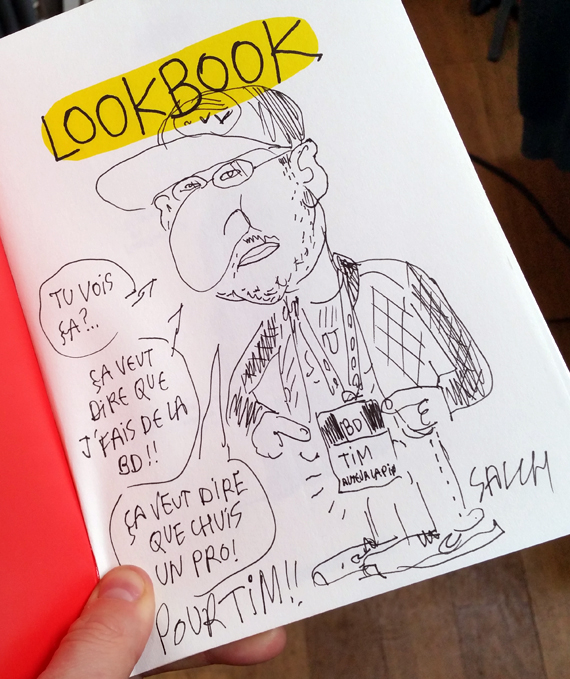 LOOKBOOK
TU VOIS
ÇA?...
ÇA VEUT
DIRE QUE
J'FAIS DE LA
BD!!
ÇA VEUT DIRE
QUE CHUIS
UN PRO!
BD
TIM
POUR TIM!!